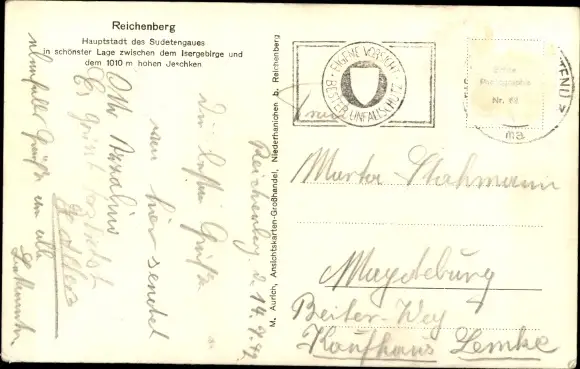 Reichenberg
Hauptstadt des Sudetengaues
in schönster Lage zwischen dem Isergebirge und
dem 1010 m hohen Jeschken
Reichenberg, d. 14.9.42
Die besten Grüße
von hier sendet
Otto
Es grüßt herzlichst
Grüße an alle
M. Aurich, Ansichtskarten-Großhandel, Niederhanichen b. Reichenberg
EIGENE VORSICHT
BESTER UNFALLSCHUTZ
Echte
Photographie
Nr. 68
Marta Stahmann
Magdeburg
Beiter-Weg
Kaufhaus Lemke